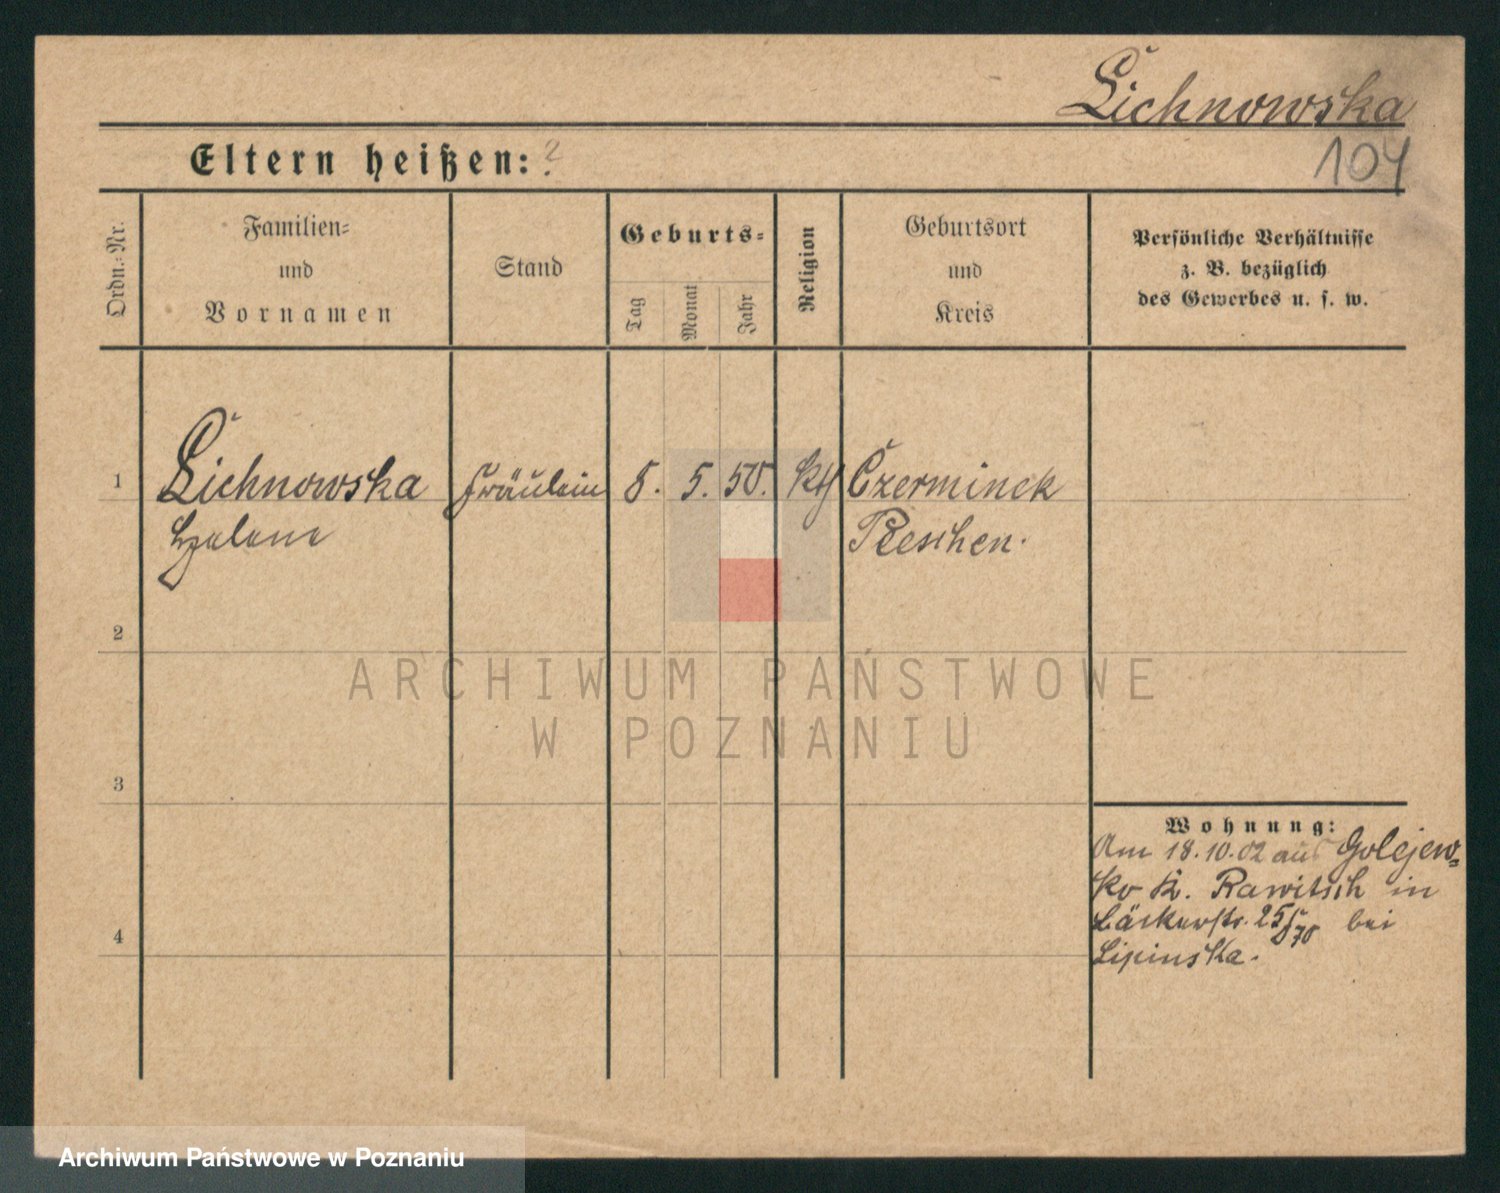 Lichnowska
104
Eltern heißen: ?
Ordn.-Nr.
Familien-
und
Vornamen
Stand
Geburts-
Tag
Monat
Jahr
Religion
Geburtsort
und
Kreis
Persönliche Verhältnisse
z. B. bezüglich
des Gewerbes u. s. w.
1
Lichnowska Fräulein 8. 5. 50. kth Czerminek
Helene Pleschen.
2
ARCHIWUM PAŃSTWOWE
W POZNANIU
3
Wohnung:
Am 18.10.02 aus Golejew-
ko K. Rawitsch in
Bäckerstr. 25 bei
Lipinska.
4
Archiwum Państwowe w Poznaniu